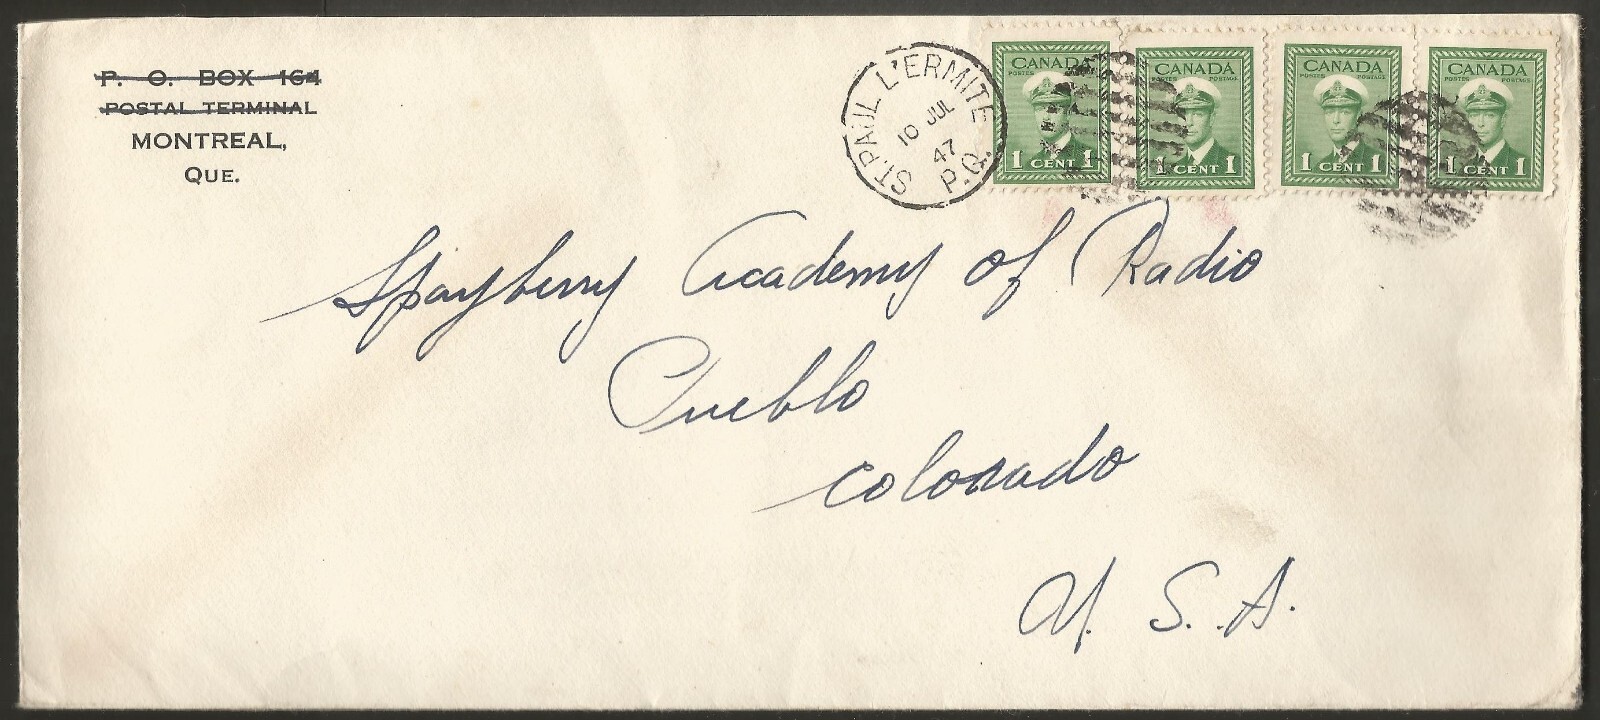 P. O. BOX 164
POSTAL TERMINAL
MONTREAL,
QUE.
ST. PAUL L'ERMITE
10 JUL
47
P.Q.
CANADA
POSTES POSTAGE
1 CENT 1
CANADA
POSTES POSTAGE
1 CENT 1
CANADA
POSTES POSTAGE
1 CENT 1
CANADA
POSTES POSTAGE
1 CENT 1
Spayberry Academy of Radio
Pueblo
Colorado
U. S. A.